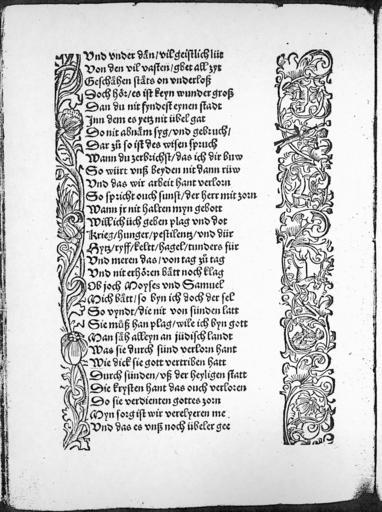 Vnd vnder dãn/vil geistlich lüt
Von den vil vasten/gbet all zyt
Geschåhen ståts on vnderloß
Doch hör/es ist keyn wunder groß
Dan du nit fyndest eynen stadt
Jnn dem es yetz nit übel gat
Do nit abnåm syg/vnd gebruch/
Dar zů so ist des wisen spruch
Wann du zerbrichst/das ich dir buw
So würt vnß beyden nit dann rüw
Vnd das wir arbeit hant verlorn
So spricht ouch sunst/der herr mit zorn
Wann jr nit halten myn gebott
Will ich üch geben plag vnd dot
Krieg/hunger/pestilentz/vnd dür
Hytz/ryff/keltt/hagel/tunders für
Vnd meren das/von tag zů tag
Vnd nit erhören bått noch klag
Ob joch Moyses vnd Samuel
Mich bått/so byn ich doch der sel
So vyndt/die nit von sünden latt
Sie můß han plag/wile ich byn gott
Man såh alleyn an jüdisch landt
Was sie durch sünd verlorn hant
Wie dick sie gott vertriben hatt
Durch sünden/vß der heyligen statt
Die krysten hant das ouch verloren
Do sie verdienten gottes zorn
Myn sorg ist wir verelyeren me
Vnd das es vnß noch übeler gee